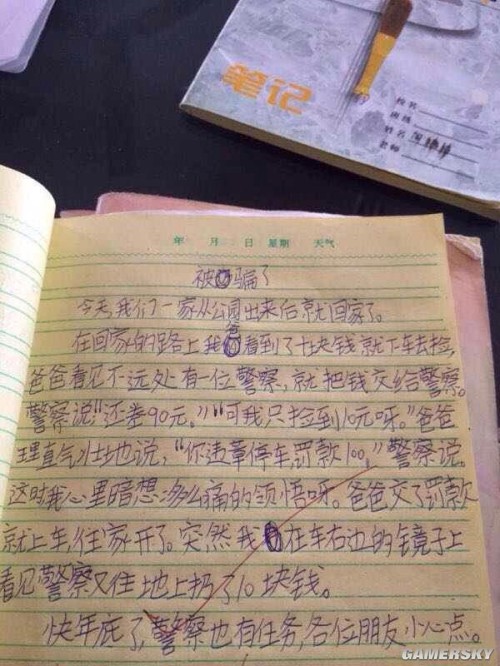 笔记
校名
班级
姓名
老师
年 月 日 星期 天气
被骗了
今天,我们一家从公园出来后就回家了。
在回家的路上我爸看到了十块钱就下车去捡,
爸爸看见不远处有一位警察,就把钱交给警察。
警察说"还差90元。""可我只捡到10元呀。"爸爸
理直气壮地说,"你违章停车罚款100,"警察说。
这时我心里暗想:多么痛的领悟呀。爸爸交了罚款
就上车,往家开了。突然我在车右边的镜子上
看见警察又往地上扔了10块钱。
快年底了,警察也有任务,各位朋友小心点。
GAMERSKY